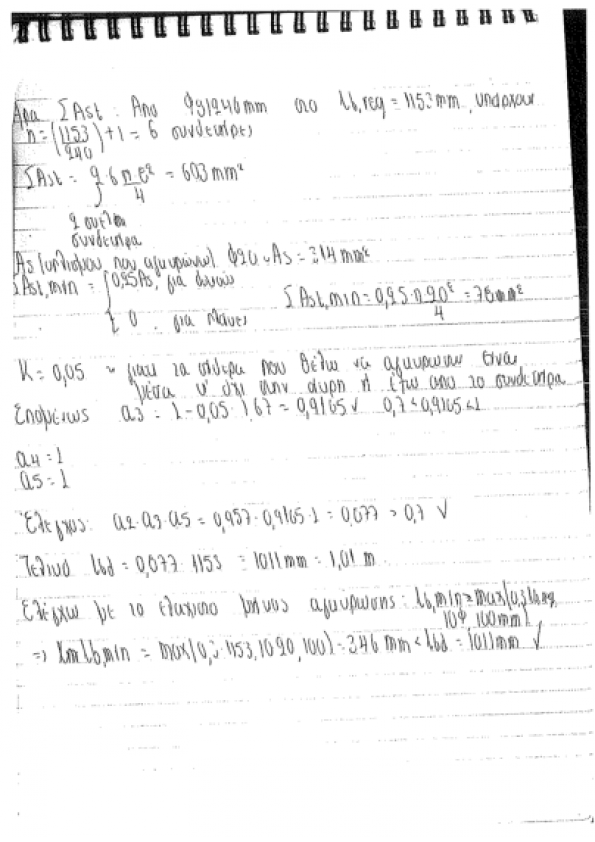 Άρα ΣAst : Από Φ8/240mm στο lb,req = 1153 mm υπάρχουν
n = (1153/240) + 1 = 6 συνδετήρες
ΣAst = 2·6 π·8²/4 = 603 mm²
2 σκέλη
συνδετήρα
As (οπλισμού που αγκυρώνω) Φ20 → As = 314 mm²
ΣAst,min = { 0,25As, για δοκούς
0 , για πλάκες
ΣAst,min = 0,25·π·20²/4 = 78 mm²
K = 0,05 → γιατί τα σίδερα που θέλω να αγκυρώσω είναι
μέσα κ' όχι στην άκρη ή έξω από το συνδετήρα
Επομένως a3 = 1 - 0,05·1,67 = 0,9165 √ 0,7 < 0,9165 < 1
a4 = 1
a5 = 1
Έλεγχος: a2·a3·a5 = 0,957·0,9165·1 = 0,877 > 0,7 √
Τελικό lbd = 0,877·1153 = 1011 mm = 1,01 m
Ελέγχω με το ελάχιστο μήκος αγκύρωσης : lb,min ≥ max(0,3 lb,req,
10Φ, 100mm)
=> lb,min = max(0,3·1153, 10·20, 100) = 346 mm < lbd = 1011mm √